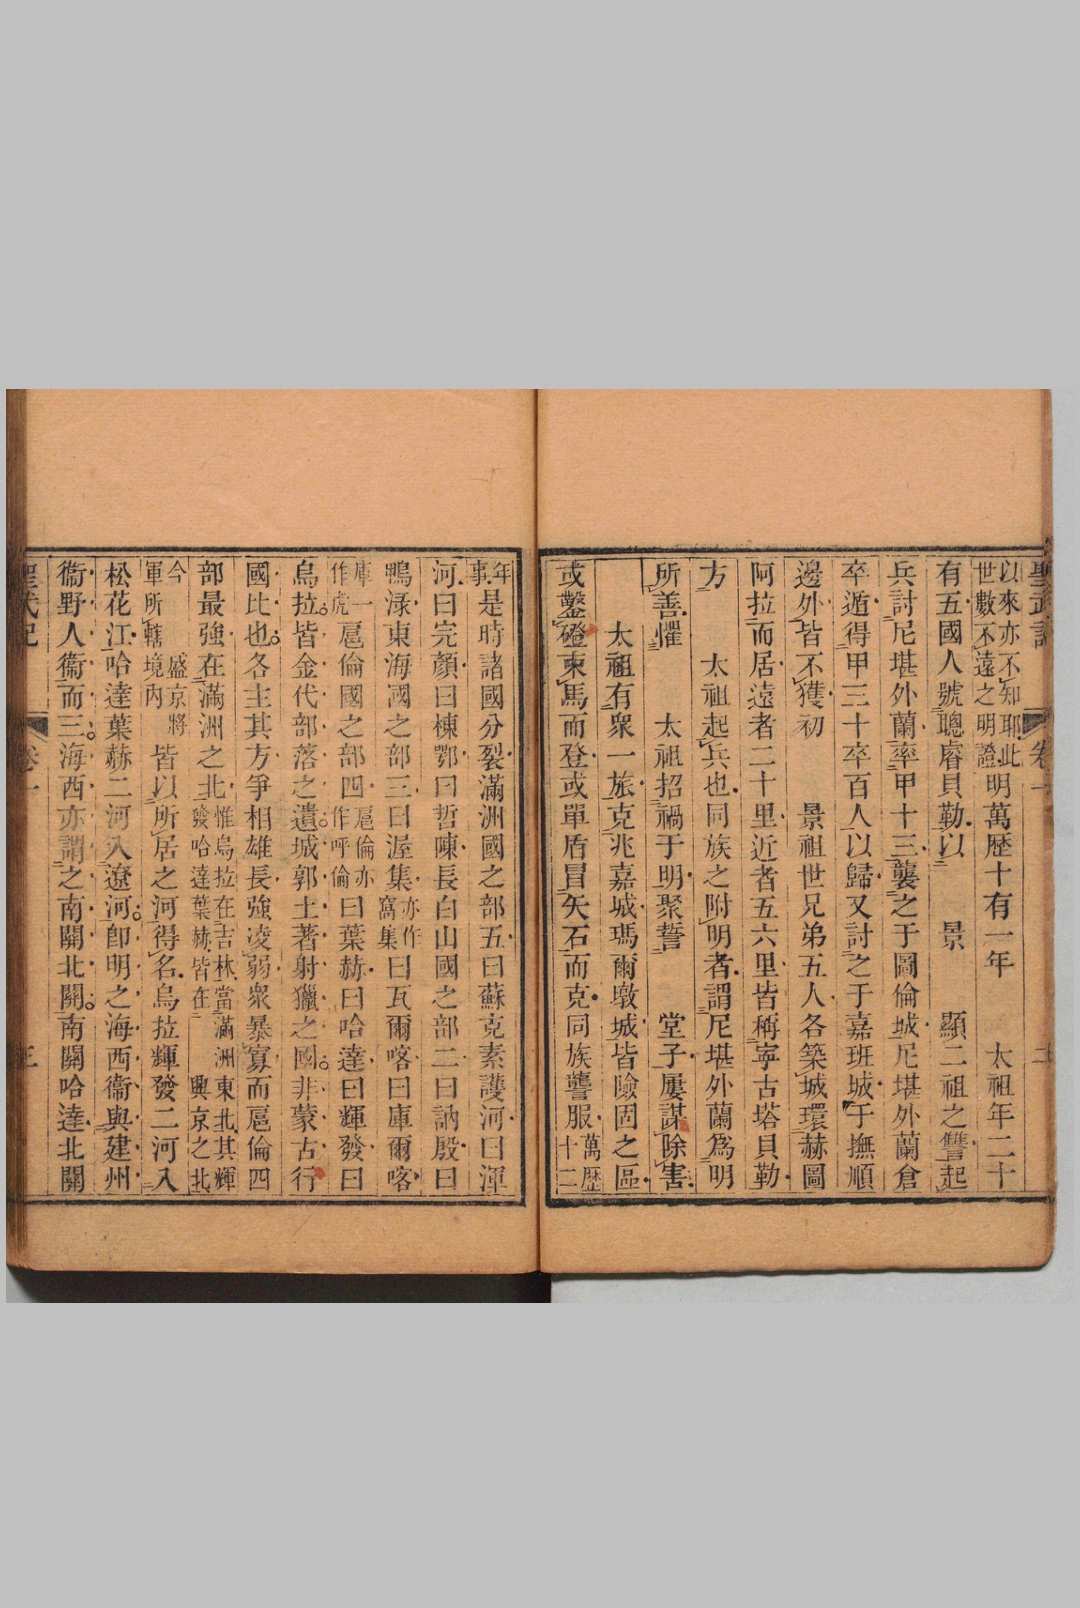 聖武記 卷一
以來亦不知耶此世數不遠之明證明萬歷十有一年 太祖年二十
有五國人號聰睿貝勒以 景 顯二祖之讐起
兵討尼堪外蘭率甲十三襲之于圖倫城尼堪外蘭倉
卒遁得甲三十卒百人以歸又討之于嘉班城于撫順
邊外皆不獲初 景祖世兄弟五人各築城環赫圖
阿拉而居遠者二十里近者五六里皆稱寧古塔貝勒
方 太祖起兵也同族之附明者謂尼堪外蘭為明
所善懼 太祖招禍于明聚誓 堂子屢謀除害
太祖有眾一旅克兆嘉城瑪爾墩城皆險固之區
或鑿磴束馬而登或單盾冒矢石而克同族讋服萬歷十二
年事是時諸國分裂滿洲國之部五曰蘇克素護河曰渾
河曰完顏曰棟鄂曰哲陳長白山國之部二曰訥殷曰
鴨淥東海國之部三曰渥集亦作窩集曰瓦爾喀曰庫爾喀
庫一作虎扈倫國之部四扈倫亦作呼倫曰葉赫曰哈達曰輝發曰
烏拉皆金代部落之遺城郭土著射獵之國非蒙古行
國比也各主其方爭相雄長強凌弱眾暴寡而扈倫四
部最強在滿洲之北惟烏拉在吉林當滿洲東北其輝發哈達葉赫皆在興京之北
今盛京將軍所轄境內皆以所居之河得名烏拉輝發二河入
松花江哈達葉赫二河入遼河卽明之海西衞與建州
衞野人衞而三海西亦謂之南關北關南關哈達北關
聖武記 卷一 三